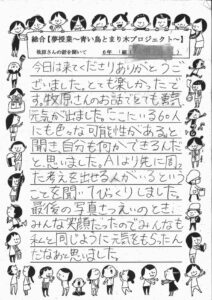 総合【夢授業～青い鳥とまり木プロジェクト～】
牧原さんの話を聞いて 6年 組
今日は来てくださりありがとうご
ざいました。とても楽しかったで
す。牧原さんのお話でとても勇気
元気が出ました。ここにいる60人
にも色々な可能性がある。と
聞き、自分も何かできるんだ
と思いました。AIより先に周っ
た考えを出せる人がいるという
ことを聞いてびっくりしました。
最後の写真さつえいのとき、
みんな笑顔だったのでみんなも
私と同じように元気をもらったん
だなぁと思いました。